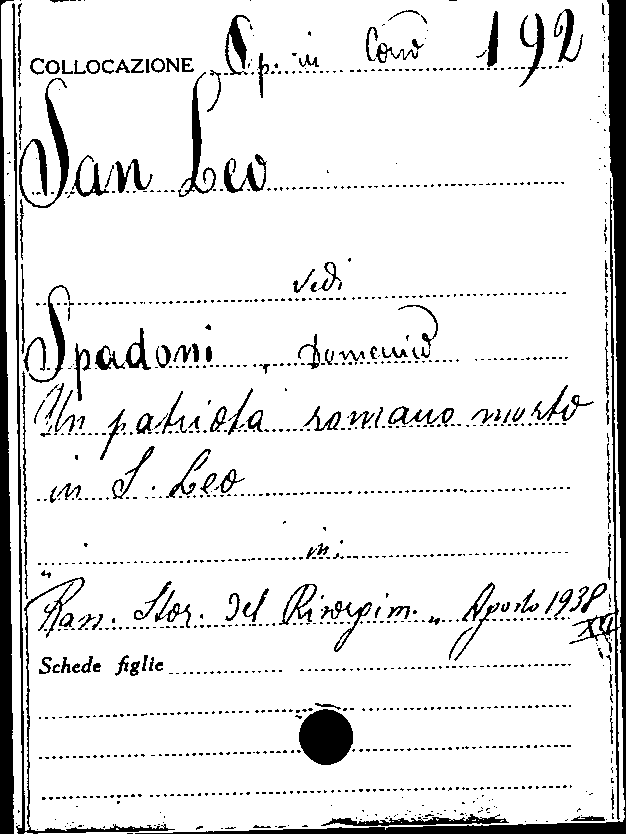 COLLOCAZIONE Op. in Cons 192
San Leo
vedi
Spadoni, Domenico
Un patriota romano morto
in S. Leo
in:
"Rass. Stor. del Risorgim. „ Agosto 1938
Schede figlie